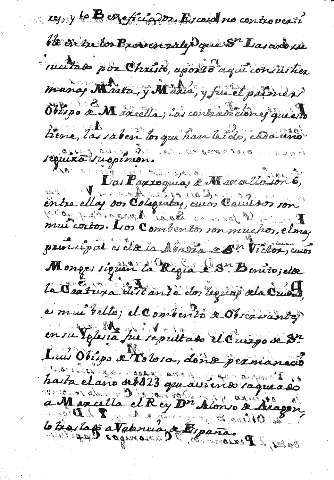 res, y 10 Beneficiados. Es cosa no controverti
ble entre los Provenzales, que Sn. Lasaro re
sucitado por Christo, aportò aqui con sus her
manas Marta, y Maria, y fue el primer
Obispo de Marcella; las contradiciones que esto
tiene, las saben los que han leido, cada uno
seguirà su opinion.
Las Parroquias de Marcella son 6,
entre ellas dos Colegiatas, cuios Cavildos son
mui cortos. Los Combentos son muchos, el mas
principal es el de la Abadia de Sn. Victor, cuios
Monges siguen la Regla de Sn. Benito; el de
la Cartuxa distante dos leguas de la Ciudad,
es mui bello; el Combento de Observantes
en su Yglesia fue sepultado el Cuerpo de Sn.
Luis Obispo de Tolosa, donde permaneciò
hasta el año de 1423 que aviendo saqueado
a Marcella el Rey Dn. Alonso de Aragon,
lo trasladò a Valencia de España.